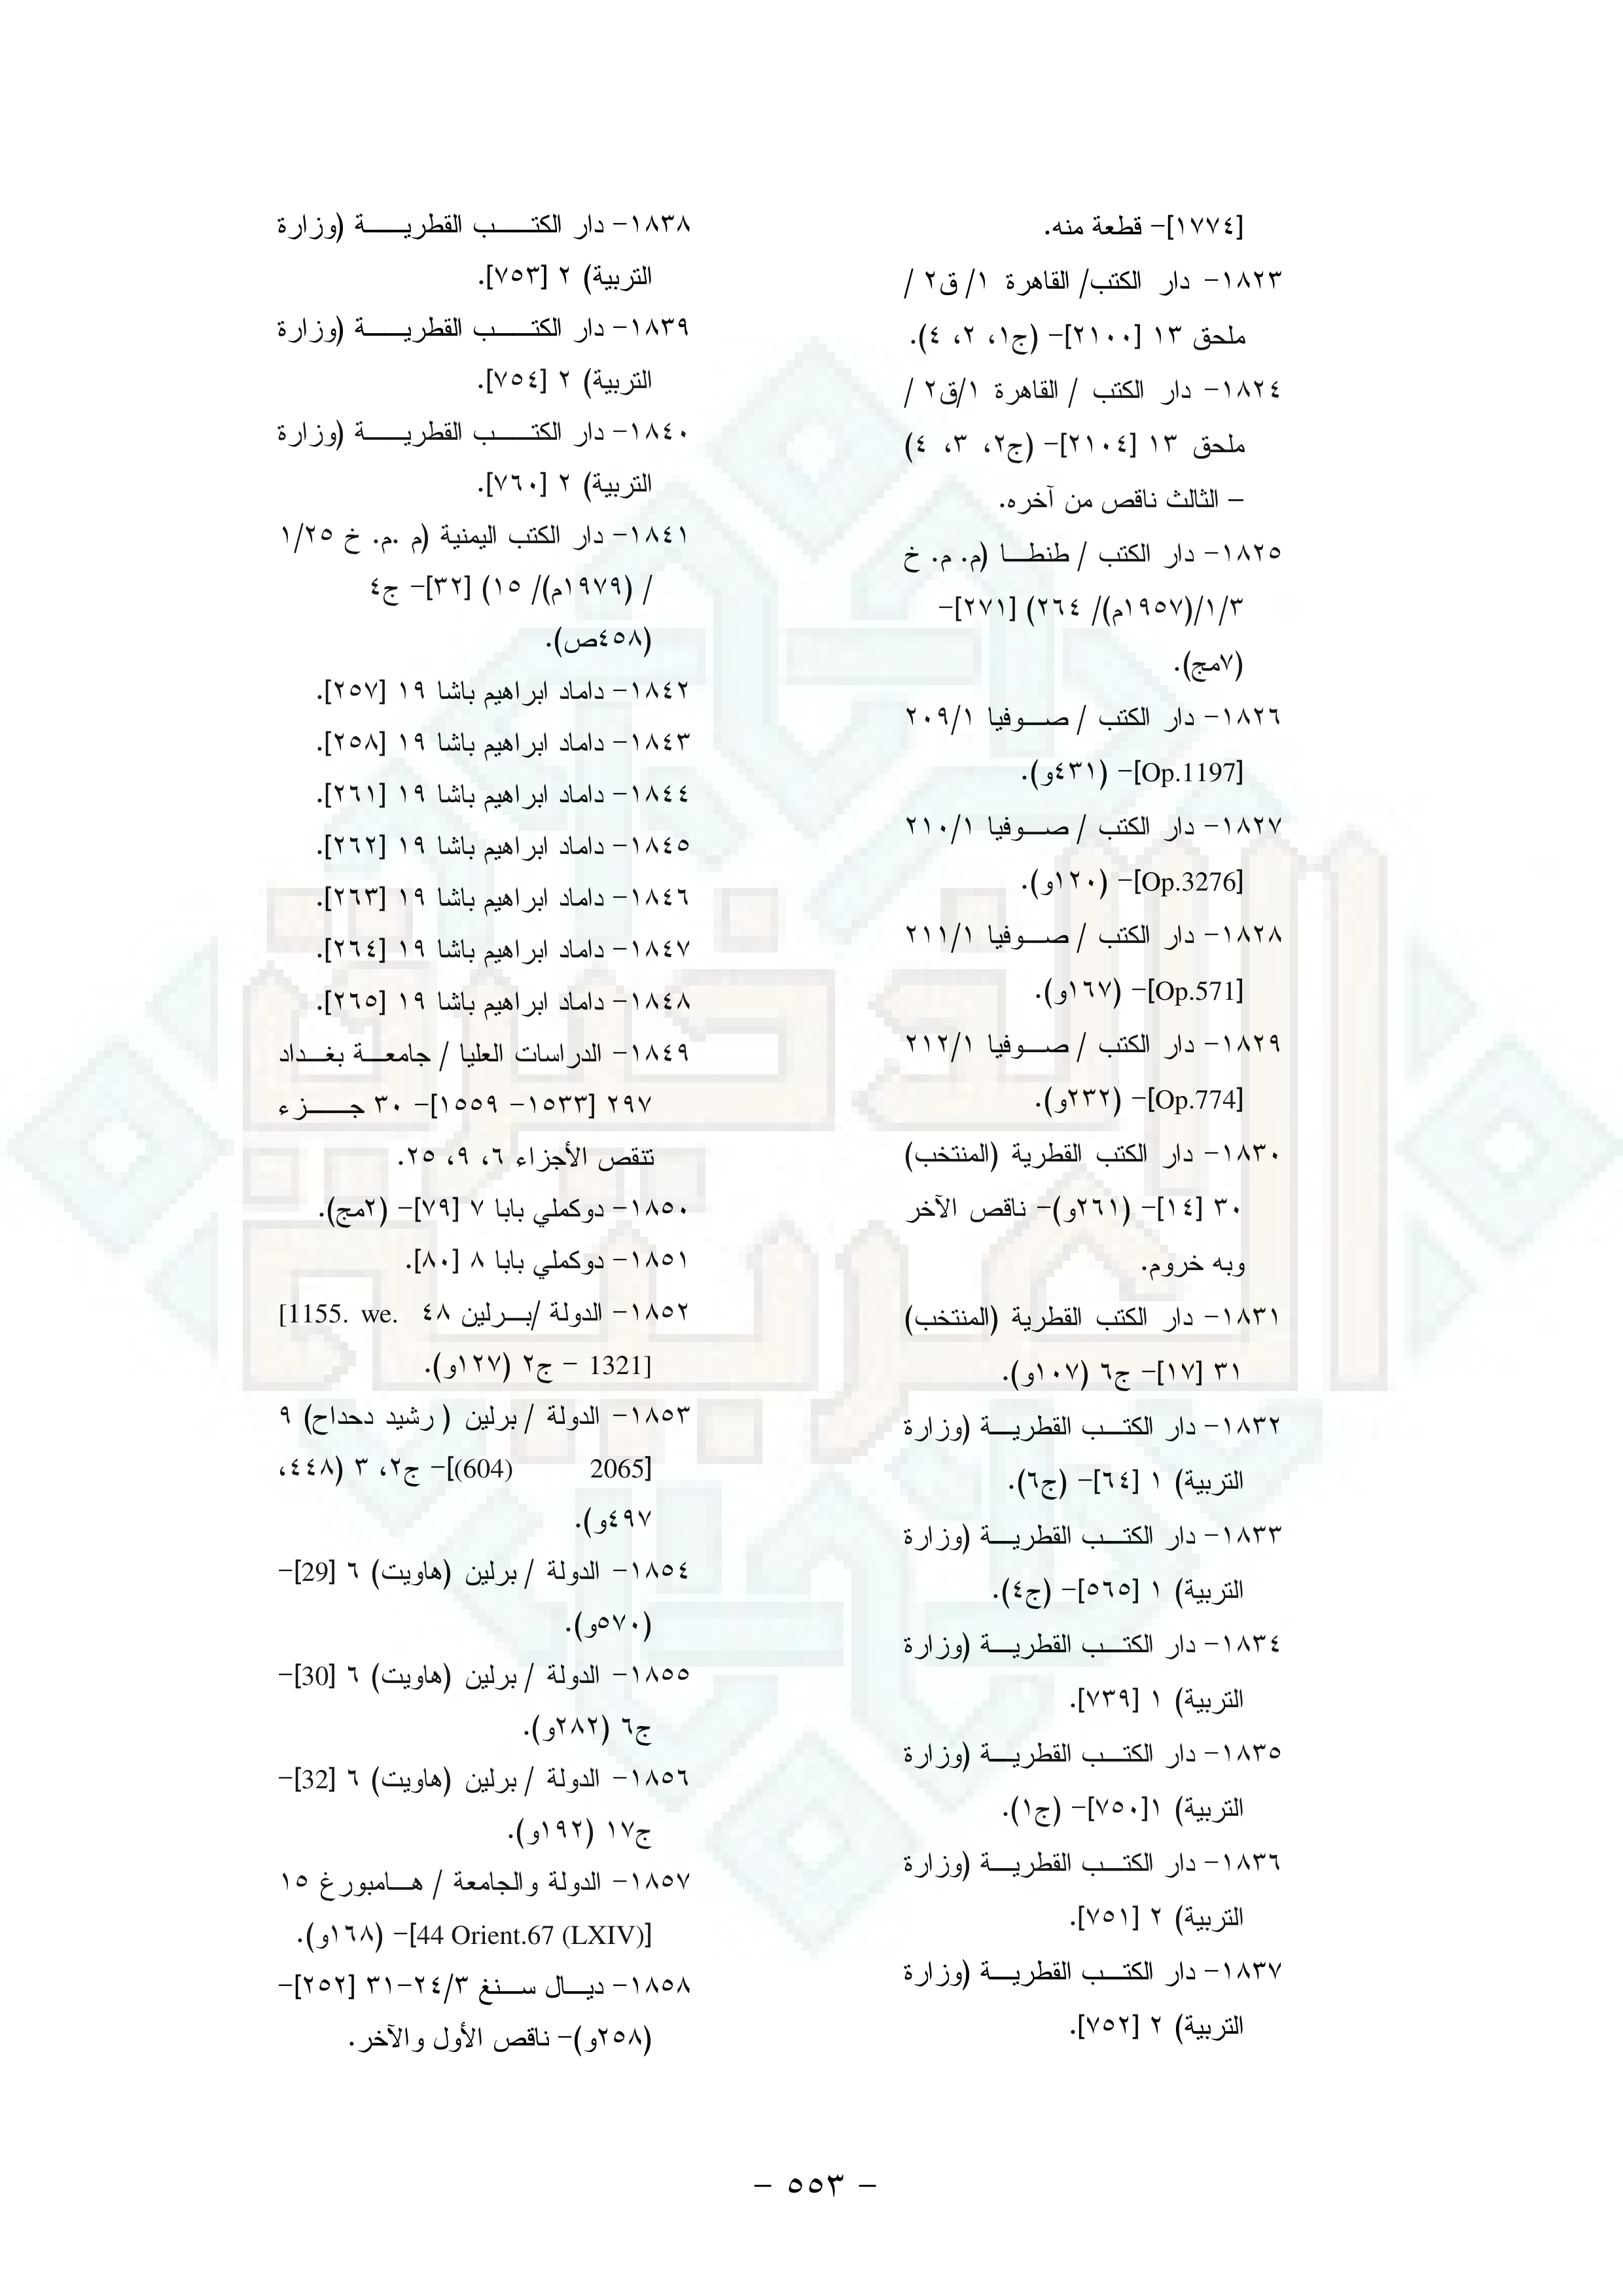 [١٧٧٤]- قطعة منه.
١٨٢٣- دار الكتب/ القاهرة ١/ ق٢ /
ملحق ١٣ [٢١٠٠]- (ج١، ٢، ٤).
١٨٢٤- دار الكتب / القاهرة ١/ق٢ /
ملحق ١٣ [٢١٠٤]- (ج٢، ٣، ٤)
– الثالث ناقص من آخره.
١٨٢٥- دار الكتب / طنطا (م. م. خ
١/٣/(١٩٥٧م)/ ٢٦٤) [٢٧١]-
(٧مج).
١٨٢٦- دار الكتب / صوفيا ٢٠٩/١
[Op.1197]- (٤٣١و).
١٨٢٧- دار الكتب / صوفيا ٢١٠/١
[Op.3276]- (١٢٠و).
١٨٢٨- دار الكتب / صوفيا ٢١١/١
[Op.571]- (١٦٧و).
١٨٢٩- دار الكتب / صوفيا ٢١٢/١
[Op.774]- (٢٣٢و).
١٨٣٠- دار الكتب القطرية (المنتخب)
٣٠ [١٤]- (٢٦١و)- ناقص الآخر
وبه خروم.
١٨٣١- دار الكتب القطرية (المنتخب)
٣١ [١٧]- ج٦ (١٠٧و).
١٨٣٢- دار الكتب القطرية (وزارة
التربية) ١ [٦٤]- (ج٦).
١٨٣٣- دار الكتب القطرية (وزارة
التربية) ١ [٥٦٥]- (ج٤).
١٨٣٤- دار الكتب القطرية (وزارة
التربية) ١ [٧٣٩].
١٨٣٥- دار الكتب القطرية (وزارة
التربية) ١[٧٥٠]- (ج١).
١٨٣٦- دار الكتب القطرية (وزارة
التربية) ٢ [٧٥١].
١٨٣٧- دار الكتب القطرية (وزارة
التربية) ٢ [٧٥٢].
١٨٣٨- دار الكتب القطرية (وزارة
التربية) ٢ [٧٥٣].
١٨٣٩- دار الكتب القطرية (وزارة
التربية) ٢ [٧٥٤].
١٨٤٠- دار الكتب القطرية (وزارة
التربية) ٢ [٧٦٠].
١٨٤١- دار الكتب اليمنية (م .م. خ ١/٢٥
/ (١٩٧٩م)/ ١٥) [٣٢]- ج٤
(٤٥٨ص).
١٨٤٢- داماد ابراهيم باشا ١٩ [٢٥٧].
١٨٤٣- داماد ابراهيم باشا ١٩ [٢٥٨].
١٨٤٤- داماد ابراهيم باشا ١٩ [٢٦١].
١٨٤٥- داماد ابراهيم باشا ١٩ [٢٦٢].
١٨٤٦- داماد ابراهيم باشا ١٩ [٢٦٣].
١٨٤٧- داماد ابراهيم باشا ١٩ [٢٦٤].
١٨٤٨- داماد ابراهيم باشا ١٩ [٢٦٥].
١٨٤٩- الدراسات العليا / جامعة بغداد
٢٩٧ [١٥٣٣- ١٥٥٩]- ٣٠ جزء
تنقص الأجزاء ٦، ٩، ٢٥.
١٨٥٠- دوكملي بابا ٧ [٧٩]- (٢مج).
١٨٥١- دوكملي بابا ٨ [٨٠].
١٨٥٢- الدولة /برلين ٤٨ [1155. we.
1321] – ج٢ (١٢٧و).
١٨٥٣- الدولة / برلين ( رشيد دحداح) ٩
[2065 (604)]- ج٢، ٣ (٤٤٨،
٤٩٧و).
١٨٥٤- الدولة / برلين (هاويت) ٦ [29]-
(٥٧٠و).
١٨٥٥- الدولة / برلين (هاويت) ٦ [30]-
ج٦ (٢٨٢و).
١٨٥٦- الدولة / برلين (هاويت) ٦ [32]-
ج١٧ (١٩٢و).
١٨٥٧- الدولة والجامعة / هامبورغ ١٥
[44 Orient.67 (LXIV)]- (١٦٨و).
١٨٥٨- ديال سنغ ٢٤/٣-٣١ [٢٥٢]-
(٢٥٨و)- ناقص الأول والآخر.
- ٥٥٣ -